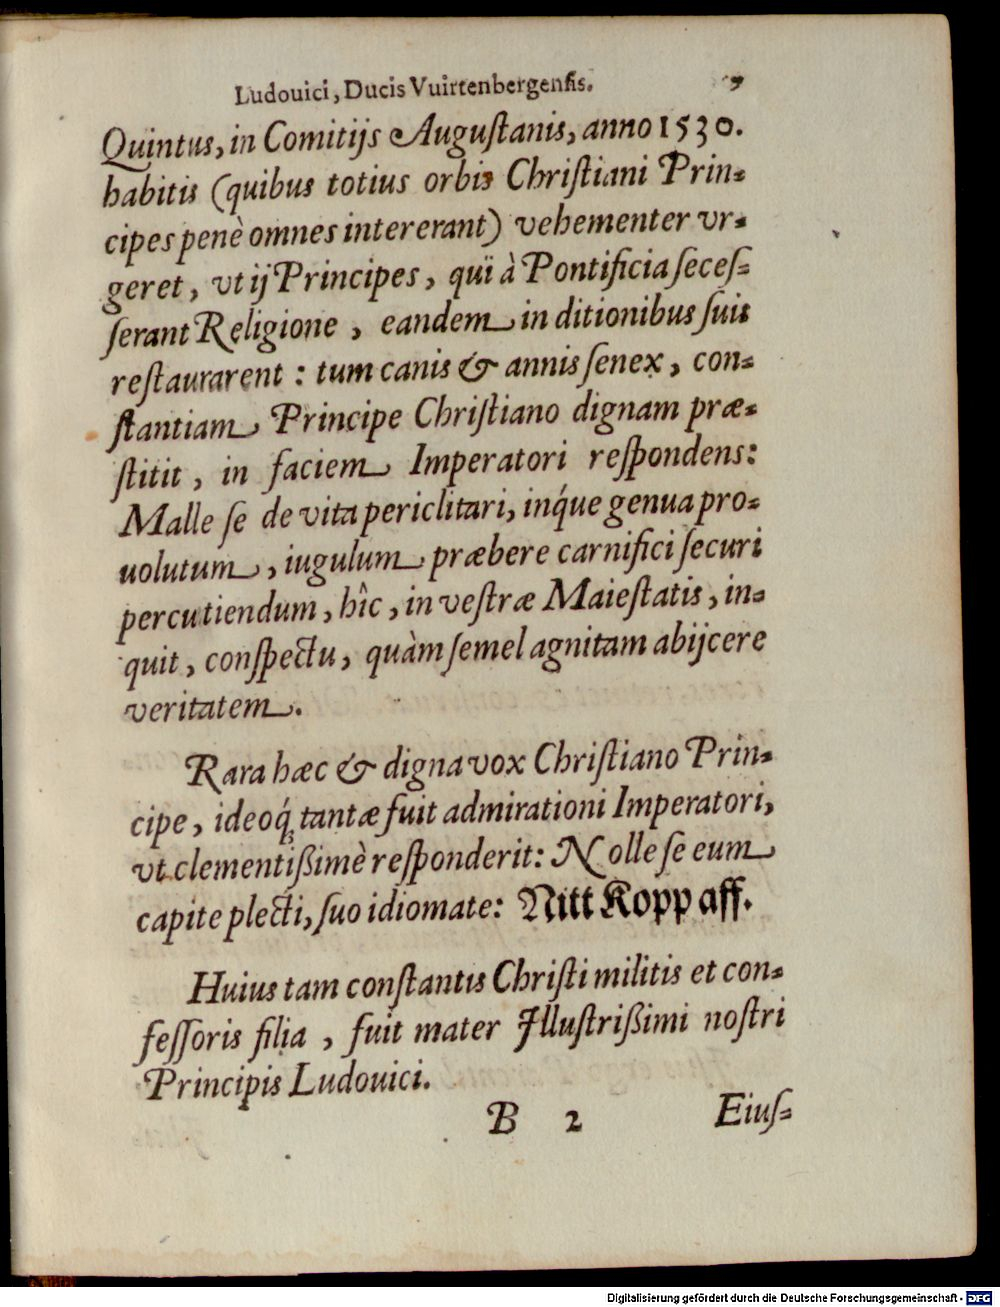 Ludouici, Ducis Vuirtenbergensis.
Quintus, in Comitijs Augustanis, anno 1530.
habitis (quibus totius orbis Christiani Prin-
cipes penè omnes intererant) vehementer vr-
geret, vt ij Principes, quï à Pontificia seces-
serant Religione, eandem in ditionibus suis
restaurarent : tum canis & annis senex, con-
stantiam Principe Christiano dignam præ-
stitit, in faciem Imperatori respondens:
Malle se de vita periclitari, inq́ue genua pro-
uolutum, iugulum præbere carnifici securi
percutiendum, hîc, in vestræ Maiestatis, in-
quit, conspectu, quàm semel agnitam abijcere
veritatem.
Rara hæc & digna vox Christiano Prin-
cipe, ideoq́; tantæ fuit admirationi Imperatori,
vt clementißimè responderit: Nolle se eum
capite plecti, suo idiomate: Nitt Kopp aff.
Huius tam constantis Christi militis et con-
fessoris filia, fuit mater Illustrißimi nostri
Principis Ludouici.
B 2 Eius-
Digitalisierung gefördert durch die Deutsche Forschungsgemeinschaft - DFG